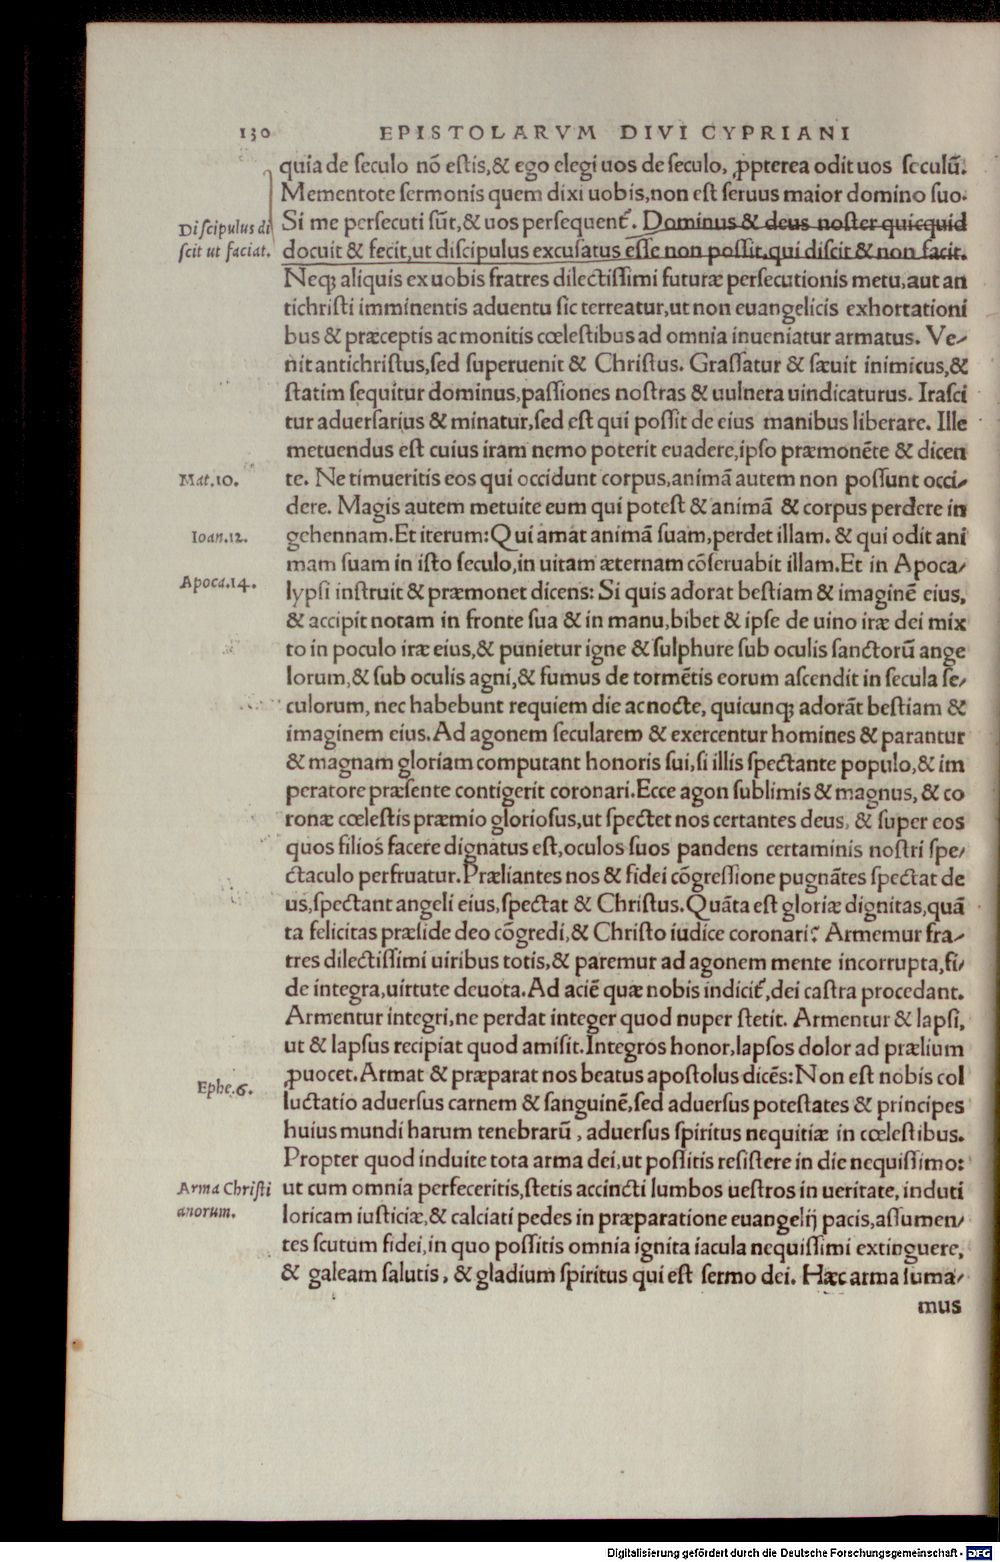 130 EPISTOLARVM DIVI CYPRIANI
quia de seculo nō estis,& ego elegi uos de seculo, ꝓpterea odit uos seculū.
Mementote sermonis quem dixi uobis,non est seruus maior domino suo.
Si me persecuti sūt,& uos persequent᷑. Dominus & deus noster quicquid
Discipulus di
scit ut faciat.
docuit & fecit,ut discipulus excusatus esse non possit,qui discit & non facit.
Neq; aliquis ex uobis fratres dilectissimi futuræ persecutionis metu,aut an
tichristi imminentis aduentu sic terreatur,ut non euangelicis exhortationi
bus & præceptis ac monitis cœlestibus ad omnia inueniatur armatus. Ve-
nit antichristus,sed superuenit & Christus. Grassatur & sæuit inimicus,&
statim sequitur dominus,passiones nostras & uulnera uindicaturus. Irasci
tur aduersarius & minatur,sed est qui possit de eius manibus liberare. Ille
metuendus est cuius iram nemo poterit euadere,ipso præmonēte & dicen
Mat.10.
te. Ne timueritis eos qui occidunt corpus,animā autem non possunt occi-
dere. Magis autem metuite eum qui potest & animā & corpus perdere in
Ioan.12.
gehennam.Et iterum:Qui amat animā suam,perdet illam. & qui odit ani
mam suam in isto seculo,in uitam æternam cōseruabit illam.Et in Apoca-
Apoca.14.
lypsi instruit & præmonet dicens: Si quis adorat bestiam & imaginē eius,
& accipit notam in fronte sua & in manu,bibet & ipse de uino iræ dei mix
to in poculo iræ eius,& punietur igne & sulphure sub oculis sanctorū ange
lorum,& sub oculis agni,& fumus de tormētis eorum ascendit in secula se-
culorum, nec habebunt requiem die ac nocte, quicunq; adorāt bestiam &
imaginem eius.Ad agonem secularem & exercentur homines & parantur
& magnam gloriam computant honoris sui,si illis spectante populo,& im
peratore præsente contigerit coronari.Ecce agon sublimis & magnus, & co
ronæ cœlestis præmio gloriosus,ut spectet nos certantes deus, & super eos
quos filios facere dignatus est,oculos suos pandens certaminis nostri spe-
ctaculo perfruatur.Præliantes nos & fidei cōgressione pugnātes spectat de
us,spectant angeli eius,spectat & Christus.Quāta est gloriæ dignitas,quā
ta felicitas præside deo cōgredi,& Christo iudice coronari? Armemur fra-
tres dilectissimi uiribus totis,& paremur ad agonem mente incorrupta,fi-
de integra,uirtute deuota.Ad aciē quæ nobis indicit᷑,dei castra procedant.
Armentur integri,ne perdat integer quod nuper stetit. Armentur & lapsi,
ut & lapsus recipiat quod amisit.Integros honor,lapsos dolor ad prælium
ꝓuocet.Armat & præparat nos beatus apostolus dicēs:Non est nobis col
Ephe.6.
luctatio aduersus carnem & sanguinē,sed aduersus potestates & principes
huius mundi harum tenebrarū , aduersus spiritus nequitiæ in cœlestibus.
Propter quod induite tota arma dei,ut possitis resistere in die nequissimo:
Arma Christi
anorum.
ut cum omnia perfeceritis,stetis accincti lumbos uestros in ueritate, induti
loricam iusticiæ,& calciati pedes in præparatione euangelij pacis,assumen-
tes scutum fidei,in quo possitis omnia ignita iacula nequissimi extinguere,
& galeam salutis, & gladium spiritus qui est sermo dei. Hæc arma suma-
mus
Digitalisierung gefördert durch die Deutsche Forschungsgemeinschaft - DFG